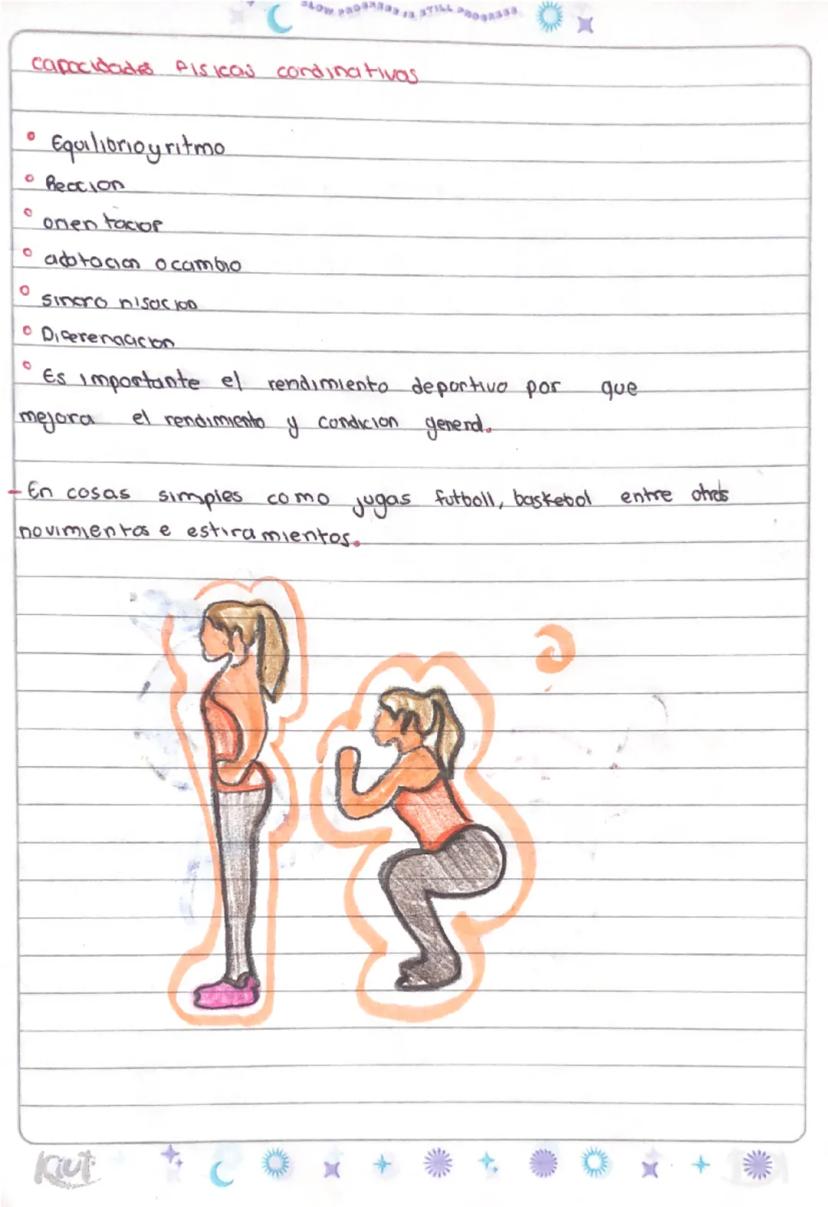 SLOW PROGRESS IS STILL PROGRESS
capacidades fisicas cordinativas
° Equilibrio y ritmo
° Reccion
° orientacion
° adotacion o cambio
° sincro nisacion
° Diferenciacion
° Es importante el rendimiento deportivo por que
mejora el rendimiento y condicion general.
- En cosas simples como jugas futboll, basketbol entre otros
movimientos e estiramientos.
Kiut